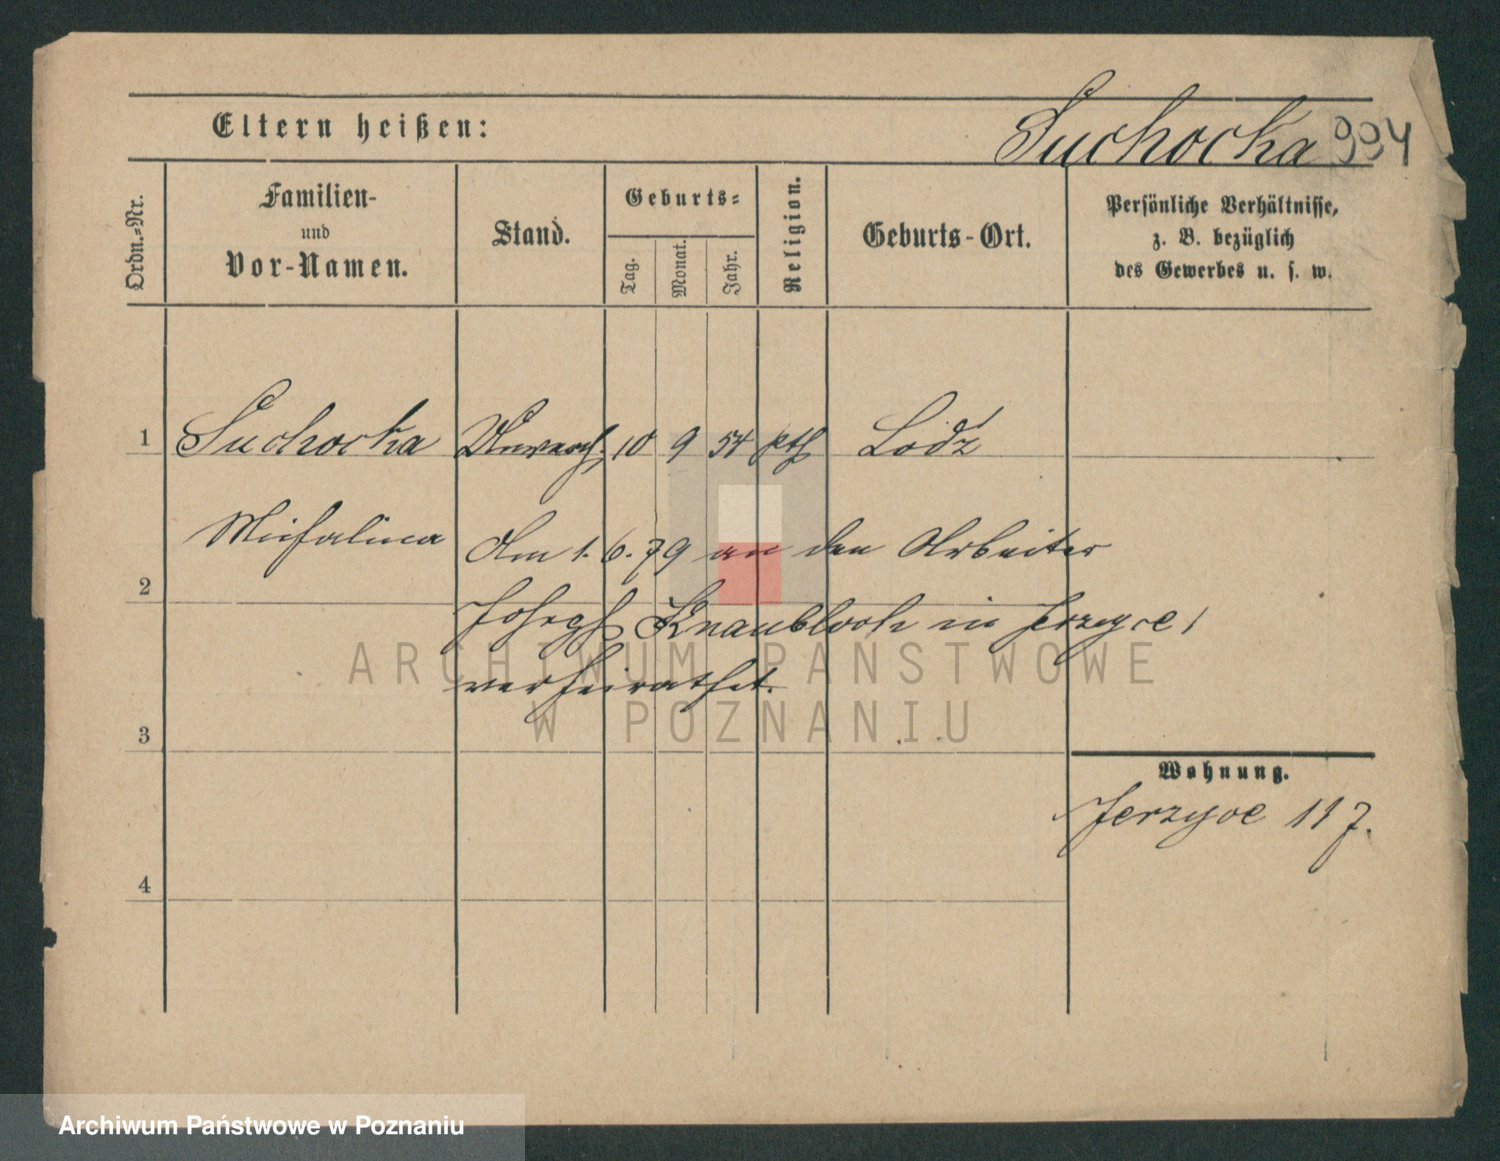 Eltern heißen:
Suchocka 994
Ordn.-Nr.
Familien-
und
Vor-Namen.
Stand.
Geburts-
Tag.
Monat.
Jahr.
Religion.
Geburts-Ort.
Persönliche Verhältnisse,
z. B. bezüglich
des Gewerbes u. s. w.
1 Suchocka Unverh. 10 9 54 kth Lodź
Michalina
Am 1. 6. 79 an den Arbeiter
2
Joseph Knaubloch in Jerzyce,
verheirathet.
3
Wohnung.
Jerzyce 117.
4
ARCHIWUM PAŃSTWOWE
W POZNANIU
Archiwum Państwowe w Poznaniu